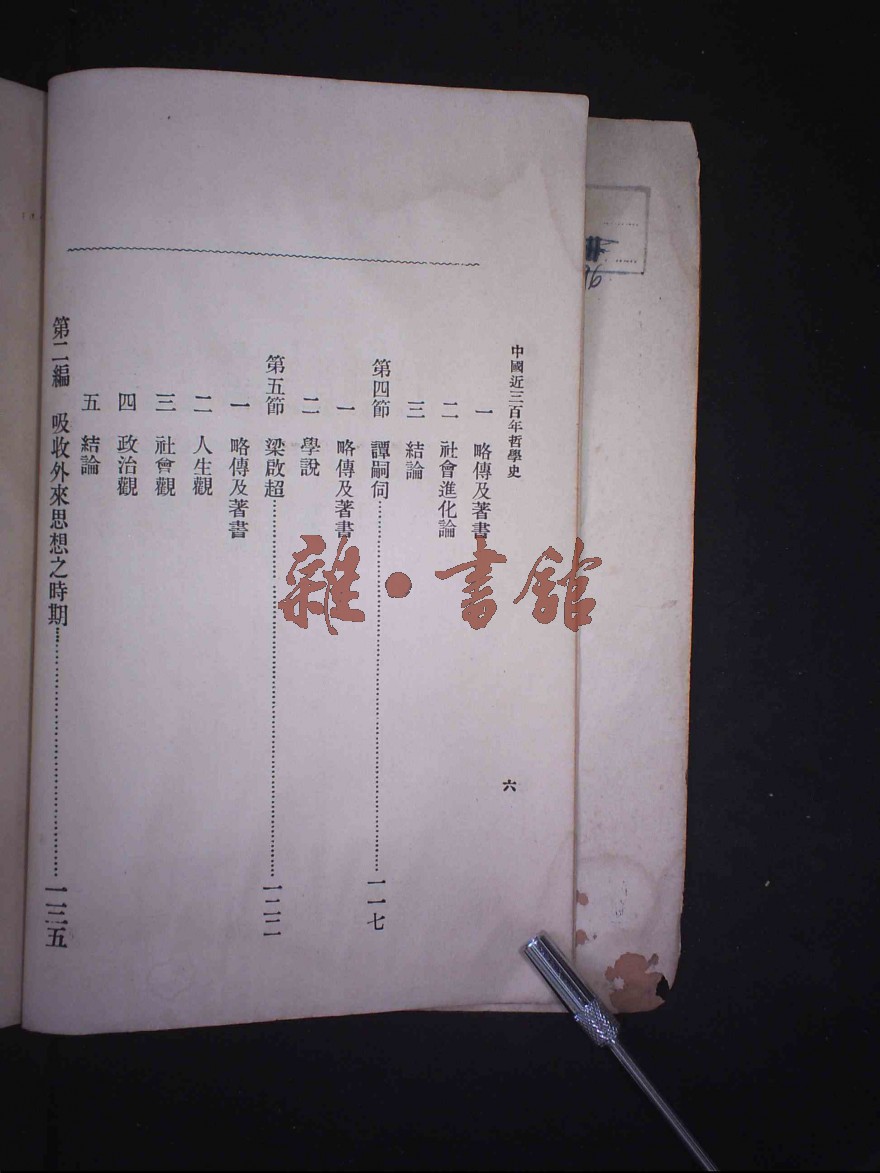 中國近三百年哲學史
六
一 略傳及著書
二 社會進化論
三 結論
第四節 譚嗣同……一一七
一 略傳及著書
二 學說
第五節 梁啟超……一二二
一 略傳及著書
二 人生觀
三 社會觀
四 政治觀
五 結論
第二編 吸收外來思想之時期……一三五
雜·書館